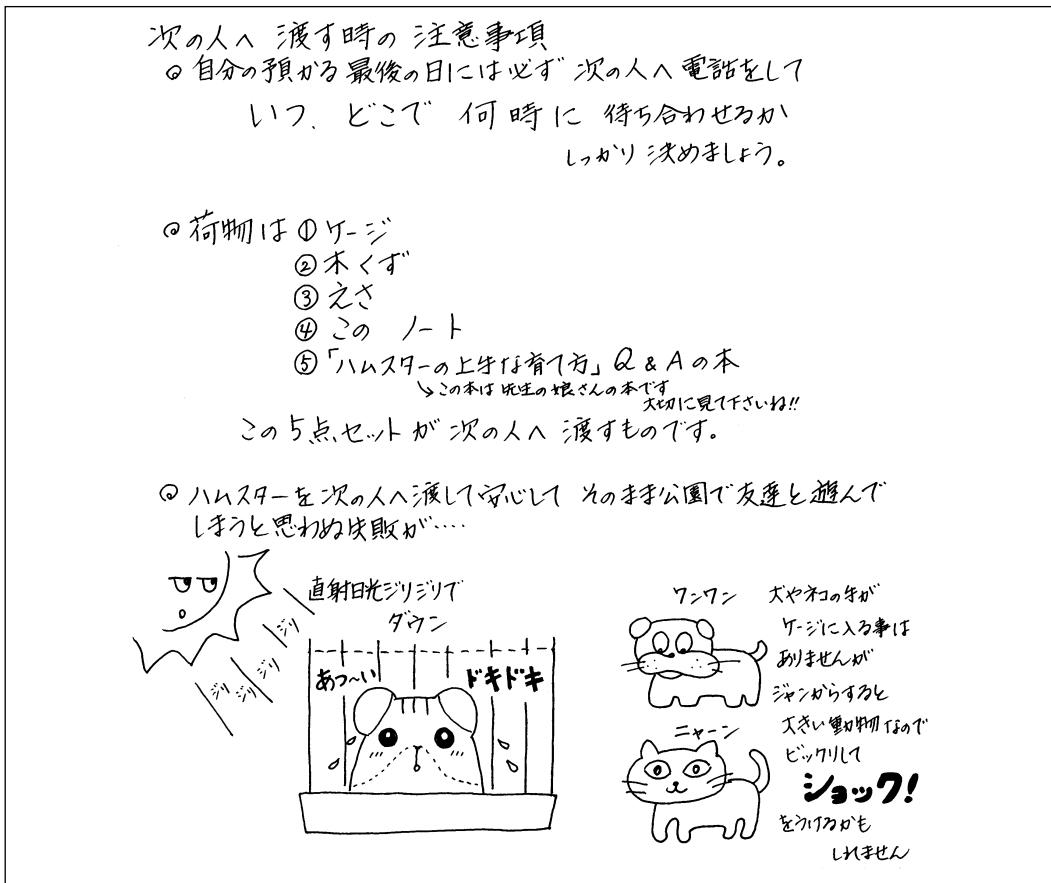 次の人へ 渡す時の 注意事項
◎ 自分の預かる最後の日には必ず 次の人へ 電話をして
いつ、どこで 何時に 待ち合わせるか
しっかり 決めましょう。
◎ 荷物は ① ケージ
② 木くず
③ えさ
④ この ノート
⑤「ハムスターの上手な育て方」Q & A の本
↘この本は 先生の娘さんの本です
大切に見て下さいね!!
この 5点セット が 次の人へ 渡すものです。
◎ ハムスターを次の人へ渡して安心して そのまま公園で友達と遊んで
しまうと思わぬ失敗が‥‥
直射日光ジリジリで
ダウン
ジリ
ジリ
ジリ
ジリ
ジリ
あつ〜い
ドキドキ
ワンワン
犬やネコの手が
ケージに入る事は
ありませんが
ジャンからすると
ニャーン
大きい動物なので
ビックリして
ショック!
をうけるかも
しれません